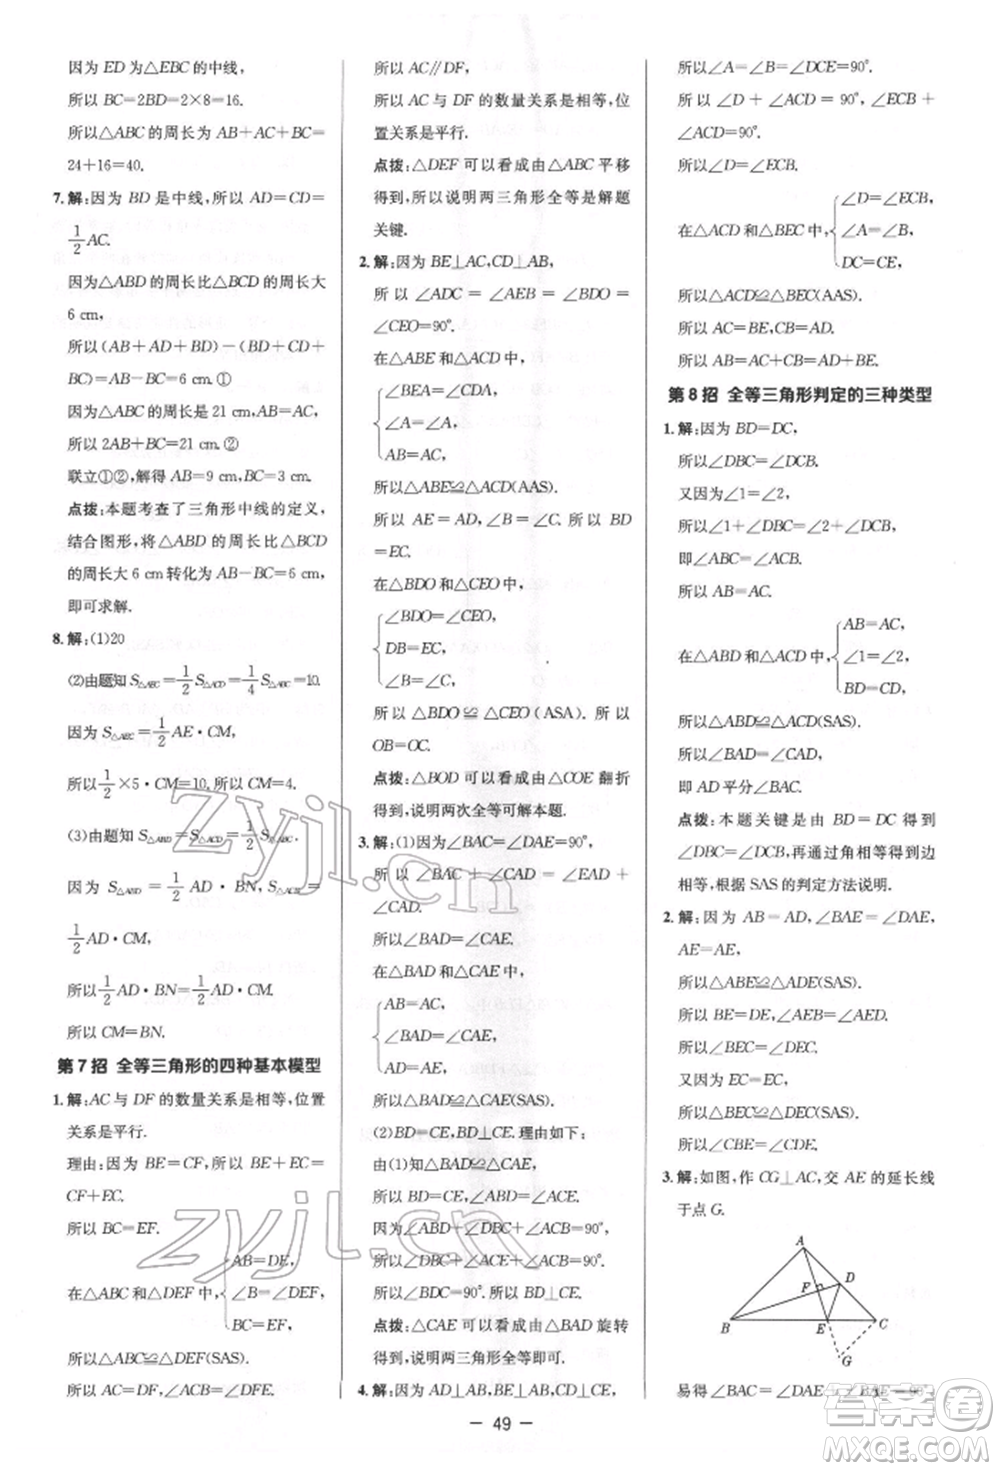 因为 ED 为△EBC 的中线,
所以 BC=2BD=2×8=16.
所以△ABC 的周长为 AB+AC+BC=
24+16=40.
7. 解:因为 BD 是中线,所以 AD=CD=
1/2 AC.
因为△ABD 的周长比△BCD 的周长大
6 cm,
所以(AB+AD+BD)-(BD+CD+
BC)=AB-BC=6 cm. ①
因为△ABC 的周长是 21 cm,AB=AC,
所以 2AB+BC=21 cm. ②
联立①②,解得 AB=9 cm,BC=3 cm.
点拨:本题考查了三角形中线的定义,
结合图形,将△ABD 的周长比△BCD
的周长大 6 cm 转化为 AB-BC=6 cm,
即可求解.
8. 解:(1)20
(2)由题知 S△AEC=1/2 S△ACD=1/4 S△ABC=10.
因为 S△AEC=1/2 AE·CM,
所以 1/2×5·CM=10,所以 CM=4.
(3)由题知 S△ABD=S△ACD=1/2 S△ABC.
因为 S△ABD=1/2 AD·BN,S△ACD=
1/2 AD·CM,
所以 1/2 AD·BN=1/2 AD·CM.
所以 CM=BN.
第 7 招 全等三角形的四种基本模型
1. 解:AC 与 DF 的数量关系是相等,位置
关系是平行.
理由:因为 BE=CF,所以 BE+EC=
CF+EC.
所以 BC=EF.
在△ABC 和△DEF 中,{AB=DE,
∠B=∠DEF,
BC=EF,
所以△ABC≌△DEF(SAS).
所以 AC=DF,∠ACB=∠DFE.
所以 AC∥DF,
所以 AC 与 DF 的数量关系是相等,位
置关系是平行.
点拨:△DEF 可以看成由△ABC 平移
得到,所以说明两三角形全等是解题
关键.
2. 解:因为 BE⊥AC,CD⊥AB,
所以∠ADC=∠AEB=∠BDO=
∠CEO=90°.
在△ABE 和△ACD 中,
{∠BEA=∠CDA,
∠A=∠A,
AB=AC,
所以△ABE≌△ACD(AAS).
所以 AE=AD,∠B=∠C. 所以 BD
=EC.
在△BDO 和△CEO 中,
{∠BDO=∠CEO,
DB=EC,
∠B=∠C,
所以△BDO≌△CEO(ASA). 所以
OB=OC.
点拨:△BOD 可以看成由△COE 翻折
得到,说明两次全等可解本题.
3. 解:(1)因为∠BAC=∠DAE=90°,
所以∠BAC+∠CAD=∠DAE+
∠CAD.
所以∠BAD=∠CAE.
在△BAD 和△CAE 中,
{AB=AC,
∠BAD=∠CAE,
AD=AE,
所以△BAD≌△CAE(SAS).
(2)BD=CE,BD⊥CE. 理由如下:
由(1)知△BAD≌△CAE,
所以 BD=CE,∠ABD=∠ACE.
因为∠ABD+∠DBC+∠ACB=90°,
所以∠DBC+∠ACE+∠ACB=90°.
所以∠BDC=90°. 所以 BD⊥CE.
点拨:△CAE 可以看成由△BAD 旋转
得到,说明两三角形全等即可.
4. 解:因为 AD⊥AB,BE⊥AB,CD⊥CE,
所以∠A=∠B=∠DCE=90°.
所以∠D+∠ACD=90°,∠ECB+
∠ACD=90°.
所以∠D=∠ECB.
在△ACD 和△BEC 中,{∠D=∠ECB,
∠A=∠B,
DC=CE,
所以△ACD≌△BEC(AAS).
所以 AC=BE,CB=AD.
所以 AB=AC+CB=AD+BE.
第 8 招 全等三角形判定的三种类型
1. 解:因为 BD=DC,
所以∠DBC=∠DCB.
又因为∠1=∠2,
所以∠1+∠DBC=∠2+∠DCB,
即∠ABC=∠ACB.
所以 AB=AC.
在△ABD 和△ACD 中,{AB=AC,
∠1=∠2,
BD=CD,
所以△ABD≌△ACD(SAS).
所以∠BAD=∠CAD,
即 AD 平分∠BAC.
点拨:本题关键是由 BD=DC 得到
∠DBC=∠DCB,再通过角相等和边
相等,根据 SAS 的判定方法说明.
2. 解:因为 AB=AD,∠BAE=∠DAE,
AE=AE,
所以△ABE≌△ADE(SAS).
所以 BE=DE,∠AEB=∠AED.
所以∠BEC=∠DEC.
又因为 EC=EC,
所以△BEC≌△DEC(SAS).
所以∠CBE=∠CDE.
3. 解:如图,作 CG⊥AC,交 AE 的延长线
于点 G.
A
F
D
B
E
C
G
易得∠BAC=∠ACG=∠AFB=90°
— 49 —
zyjl.cn
zyjl.cn
答案圈
MXQE.COM